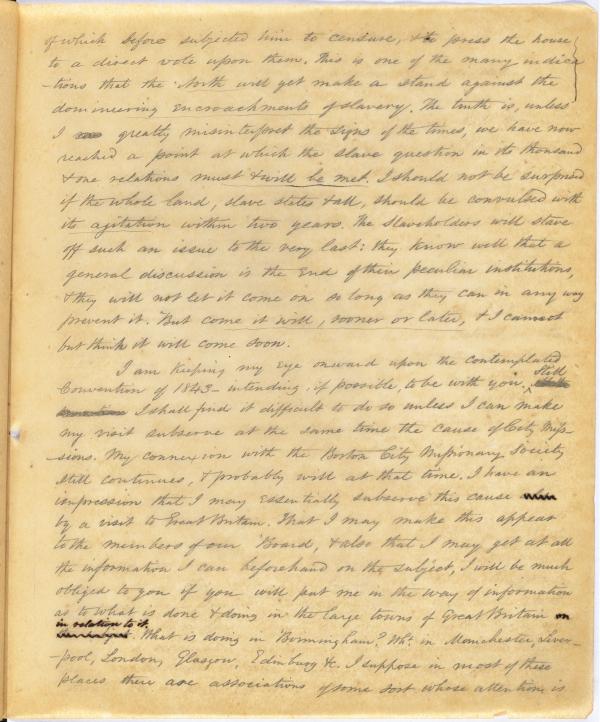 of which before subjected him to censure, & to press the house
to a direct vote upon them. This is one of the many indica
-tions that the North will yet make a stand against the
domineering encroachments of slavery. The truth is, unless
I greatly misinterpret the signs of the times, we have now
reached a point at which the slave question in its thousand
& one relations must & will be met. I should not be surprised
if the whole land, slave states & all, should be convulsed with
its agitation within two years. The Slaveholders will stave
off such an issue to the very last: they know well that a
general discussion is the end of their peculiar institutions,
& they will not let it come on so long as they can in any way
prevent it. But come it will, sooner or later, & I cannot
but think it will come soon.
I am keeping my eye onward upon the contemplated
Convention of 1843 - intending, if possible, to be with you. Still
I shall find it difficult to do so unless I can make
my visit subserve at the same time the cause of City Miss
-sions. My connexion with the Boston City Missionary Society
still continues, & probably will at that time. I have an
impression that I may essentially subserve this cause
by a visit to Great Britain. That I may make this appear
to the members of our Board, & also that I may get at all
the information I can beforehand on the subject, I will be much
obliged to you if you will put me in the way of information
as to what is done & doing in the large towns of Great Britain
in relation to it.
What is doing in Birmingham? Wh: in Manchester, Liver-
-pool, London, Glasgow, Edinburg &c. I suppose in most of these
places there are associations of some sort whose attention is